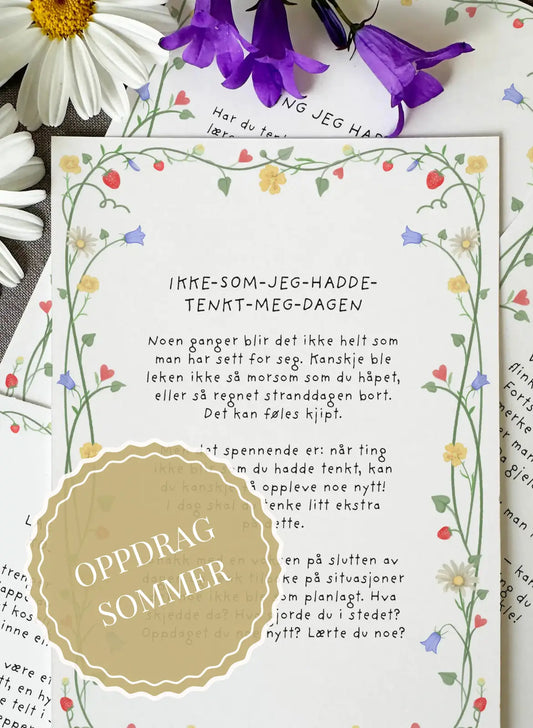 NG JEG HADDE
Har du tenk
lære
IKKE-SOM-JEG-HADDE-
TENKT-MEG-DAGEN
Noen ganger blir det ikke helt som
man har sett for seg. Kanskje ble
leken ikke så morsom som du håpet,
eller så regnet stranddagen bort.
Det kan føles kjipt.
Men det spennende er: når ting
ikke blir som du hadde tenkt, kan
du kanskje få oppleve noe nytt!
I dag skal du tenke litt ekstra
på dette.
Snakk med en voksen på slutten av
dagen. Tenk tilbake på situasjoner
som ikke ble som planlagt. Hva
skjedde da? Hva gjorde du i stedet?
Oppdaget du noe nytt? Lærte du noe?
OPPDRAG
SOMMER
Forts
merke
man
man i
– kan
kle!
tren
kos
inne e
være et
t, en hy
e telt i